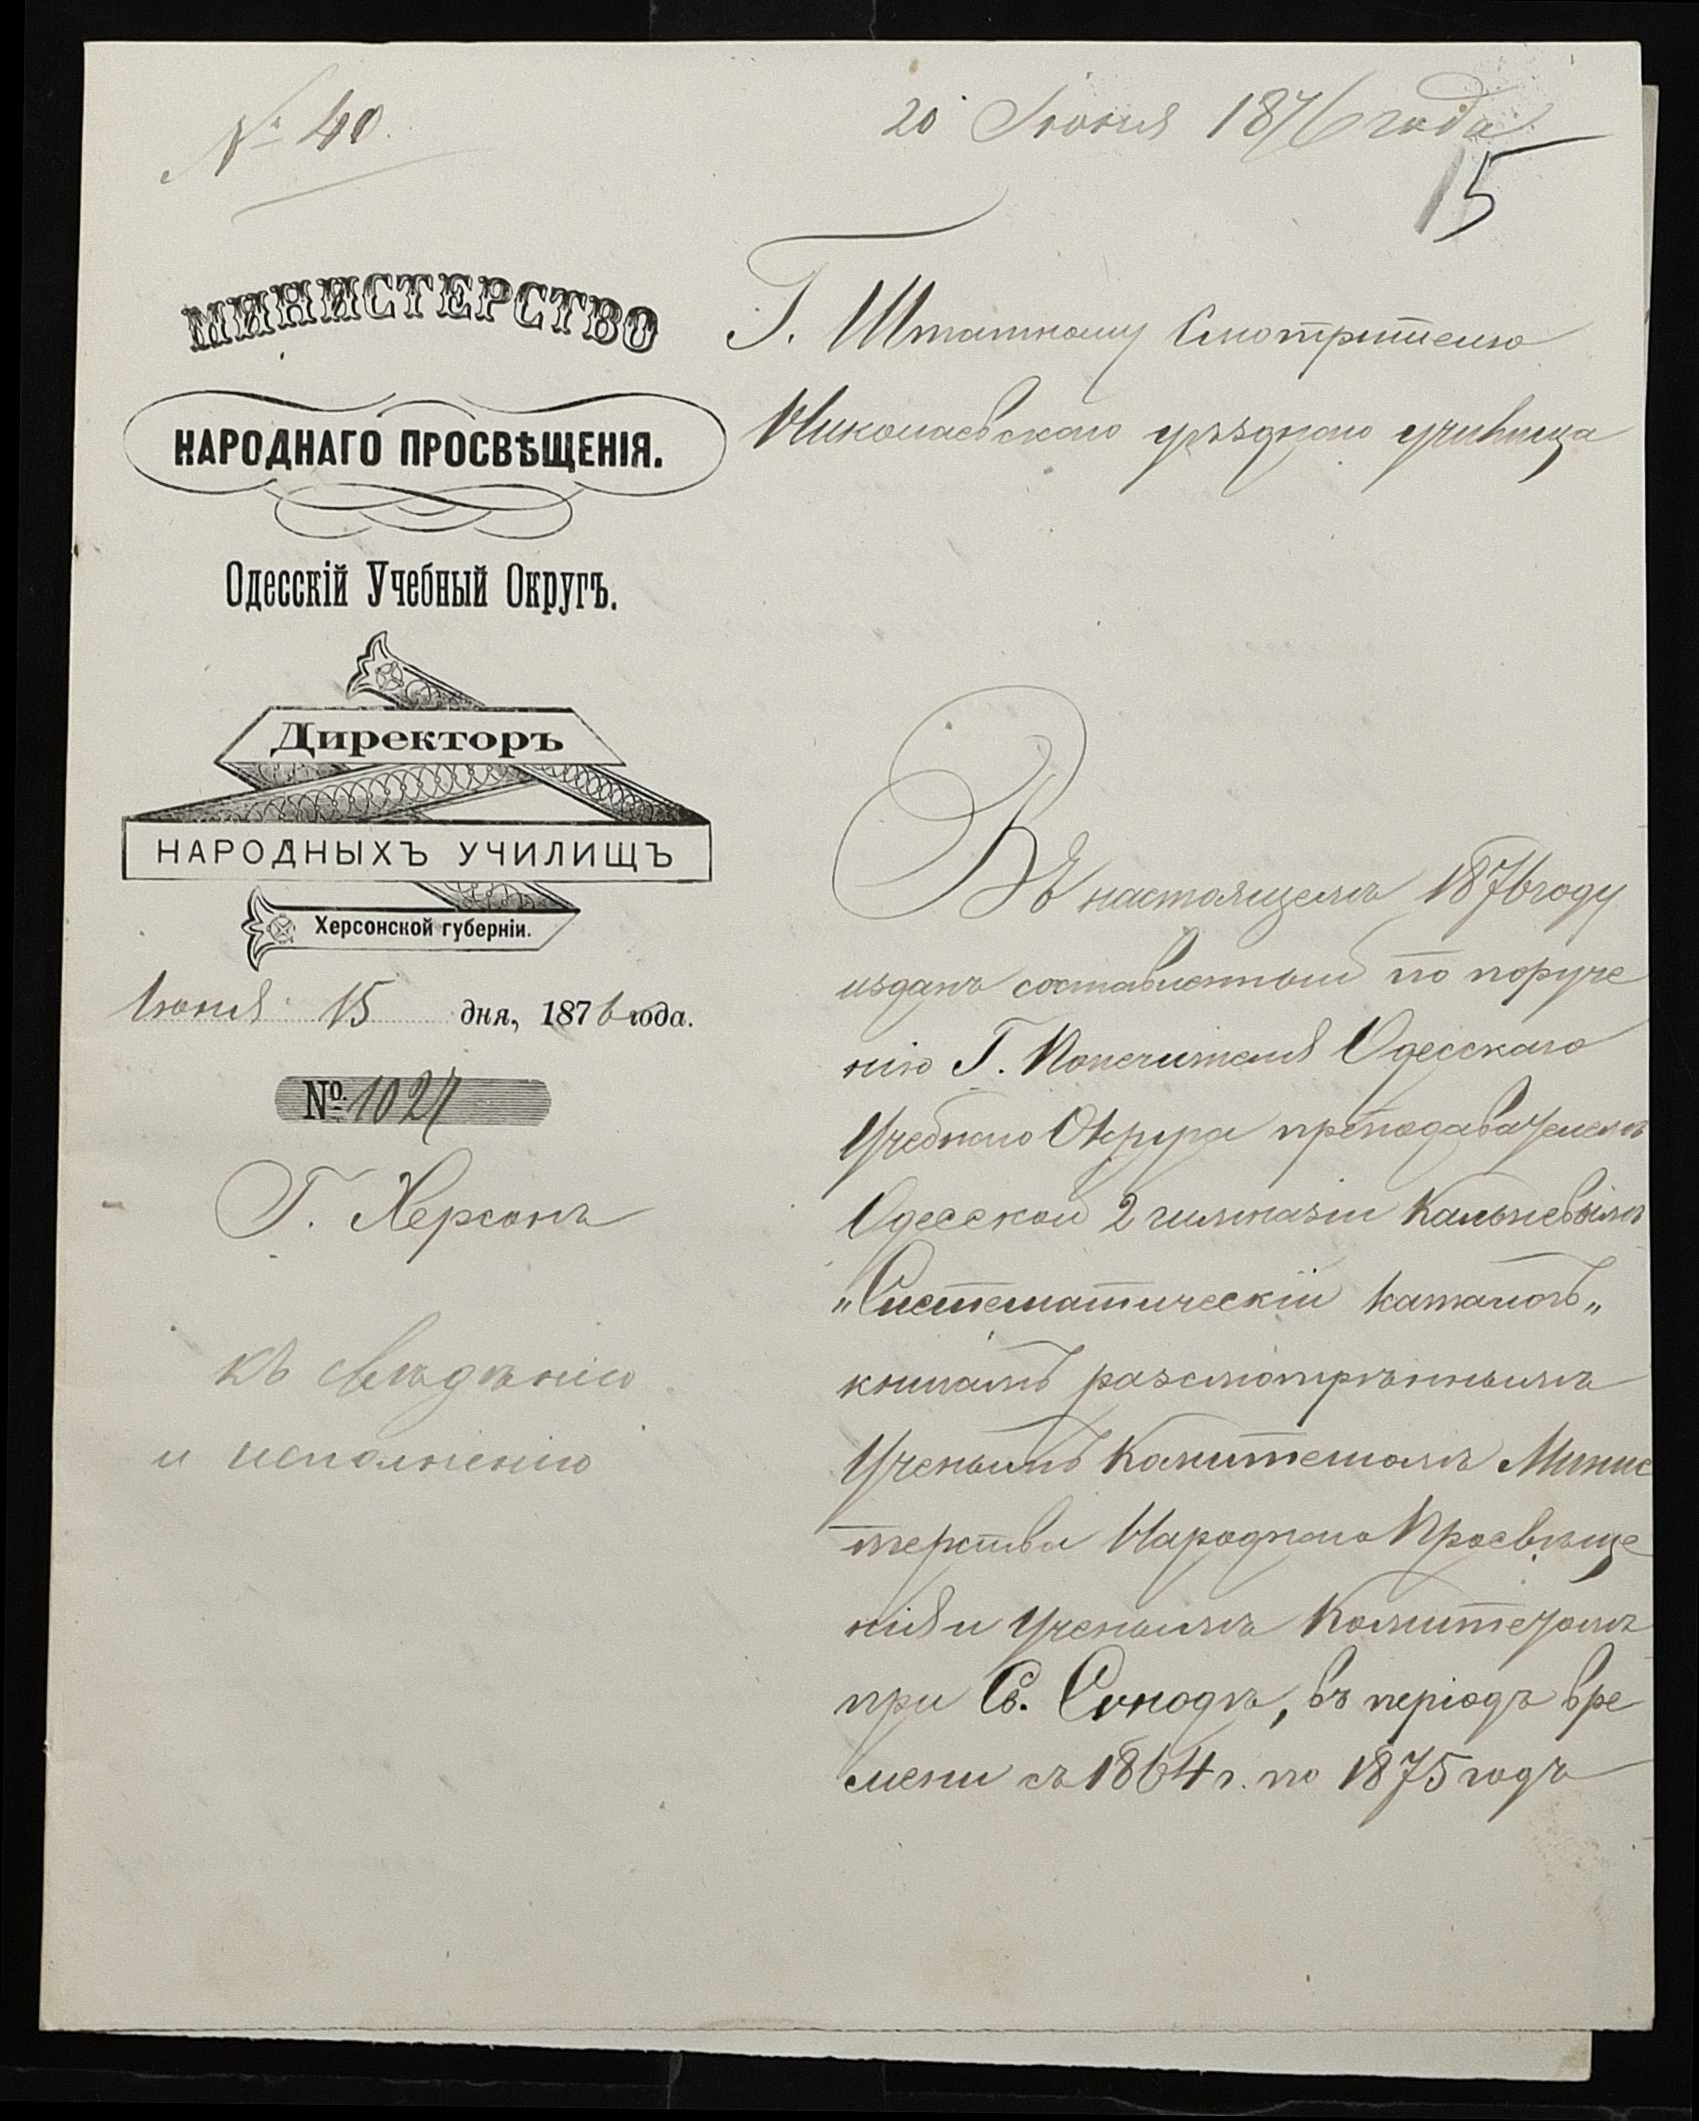 № 40.
20 Июня 1876 года
15
МИНИСТЕРСТВО
НАРОДНАГО ПРОСВѢЩЕНІЯ.
Одесскій Учебный Округъ.
Директоръ
НАРОДНЫХЪ УЧИЛИЩЪ
Херсонской губерніи.
Іюня 15 дня, 1876 года.
№ 1027
Г. Херсонъ
къ свѣдѣнію
и исполненію
Г. Штатному Смотрителю
Николаевскаго уѣзднаго училища
Въ настоящемъ 1876 году
изданъ составленный по поруче
нію Г. Попечителя Одесскаго
Учебнаго Округа преподавателемъ
Одесской 2 гимназіи Кальневымъ
„Систематическій каталогъ„
книгамъ разсмотрѣннымъ
Ученымъ Комитетомъ Минис
терства Народнаго Просвѣще
нія и Ученымъ Комитетомъ
при Св. Сѵнодѣ, въ періодъ вре
мени съ 1864 г. по 1875 годъ